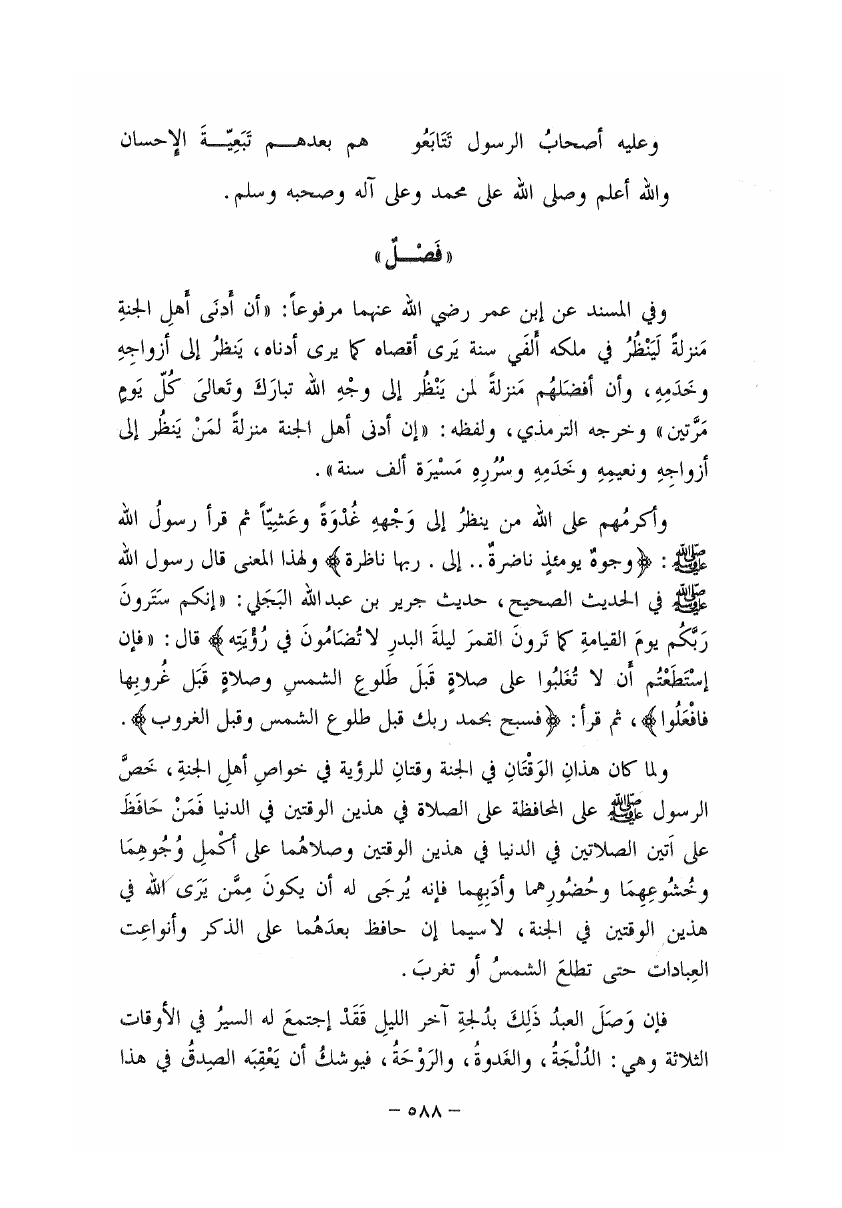 وعليه أصحابُ الرسول تَتَابَعُو هم بعدهـم تَبَعِيّـةَ الإحسان
والله أعلم وصلى الله على محمد وعلى آله وصحبه وسلم.
«فَصْـلٌ»
وفي المسند عن إبن عمر رضي الله عنهما مرفوعاً: «أن أَدنَى أَهلِ الجنةِ
مَنزلةً لَيَنْظُرُ في ملكه أَلفَي سنة يَرى أقصاه كما يرى أدناه، يَنظرُ إلى أزواجِهِ
وخَدَمِهِ، وأن أفضَلهُم مَنزلةً لمن يَنْظُر إلى وجْهِ الله تبارَكَ وتَعالىَ كُلّ يَومٍ
مَرَّتين» وخرجه الترمذي، ولفظه: «إن أدنى أهل الجنة منزلةً لمَنْ يَنظُر إلى
أزواجِهِ ونعيمِهِ وخَدَمِهِ وسُرُرِهِ مَسْيَرَة ألف سنة».
وأكرمُهم على الله من ينظرُ إلى وَجْههِ غُدْوَةً وعَشيّاً ثم قرأ رسولُ الله
ﷺ: ﴿وجوهٌ يومئذٍ ناضرةٌ.. إلى . ربها ناظرة﴾ ولهذا المعنى قال رسول الله
ﷺ في الحديث الصحيح، حديث جرير بن عبدالله البَجَلي: «إنكم سَتَرونَ
رَبَّكُم يومَ القيامةِ كما تَرونَ القمرَ ليلةَ البدرِ لاتُضَامُونَ في رُؤْيَتِه﴾ قال: «فإن
إسْتَطَعْتُم أَن لا تُغَلبُوا على صلاةٍ قَبلَ طَلوعِ الشمسِ وصلاةٍ قَبَل غُروبِها
فافْعَلُوا﴾، ثم قرأ: ﴿فسبح بحمد ربك قبل طلوع الشمس وقبل الغروب﴾.
ولما كان هذانِ الوَقْتَانِ في الجنة وقتانِ للرؤية في خواصِ أهلِ الجنةِ، خَصَّ
الرسول ﷺ على المحافظة على الصلاة في هذين الوقتين في الدنيا فَمَنْ حَافَظَ
على اَتين الصلاتين في الدنيا في هذين الوقتين وصلاهُما على أكْملِ وُجُوهِمَا
وخُشُوعِهِمَا وحُضُورِهما وأدَبِهِما فإنه يُرجَى له أن يكونَ مِمَّن يَرَى الله في
هذين الوقتين في الجنة، لاسيما إن حافظ بعدَهُما على الذكر وأنواعِت
العِبادات حتى تطلعَ الشمسُ أو تغربَ.
فإن وَصَلَ العبدُ ذَلِكَ بدُلجةِ آخر الليلِ فَقَدْ إجتمعَ له السيرُ في الأوقات
الثلاثة وهي: الدُلْجَةُ، والغَدوةُ، والرَوْحَةُ، فيوشكُ أن يَعْقِبَه الصِدقُ في هذا
– ٥٨٨ –